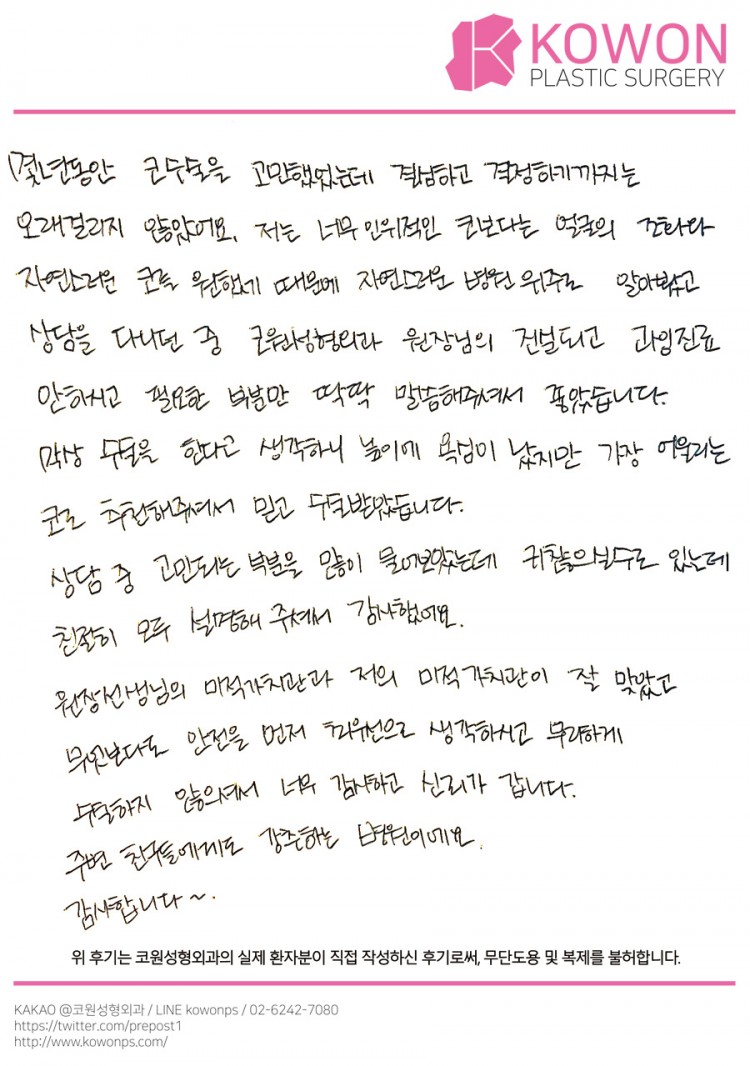 KOWON
PLASTIC SURGERY
몇년동안 코수술을 고민했었는데 결심하고 결정하기까지는
오래걸리지 않았어요. 저는 너무 인위적인 코보다는 얼굴의 조화와
자연스러운 코를 원했기 때문에 자연스러운 병원 위주로 알아봤고
상담을 다니던 중 코원성형외과 원장님의 컨설되고 과잉진료
안하시고 필요한 부분만 딱딱 말씀해주셔서 좋았습니다.
막상 수술을 한다고 생각하니 높이에 욕심이 났지만 가장 어울리는
코로 추천해주셔서 믿고 수술받았습니다.
상담 중 고민되는 부분을 많이 물어보았는데 귀찮으실수도 있는데
친절히 모두 설명해 주셔서 감사했어요.
원장선생님의 미적가치관과 저의 미적가치관이 잘 맞았고
무엇보다도 안전을 먼저 최우선으로 생각하시고 무리하게
수술하지 않으셔서 너무 감사하고 신뢰가 갑니다.
주변 친구들에게도 강추하는 병원이에요.
감사합니다~.
위 후기는 코원성형외과의 실제 환자분이 직접 작성하신 후기로써, 무단도용 및 복제를 불허합니다.
KAKAO @코원성형외과 / LINE kowonps / 02-6242-7080
https://twitter.com/prepost1
http://www.kowonps.com/